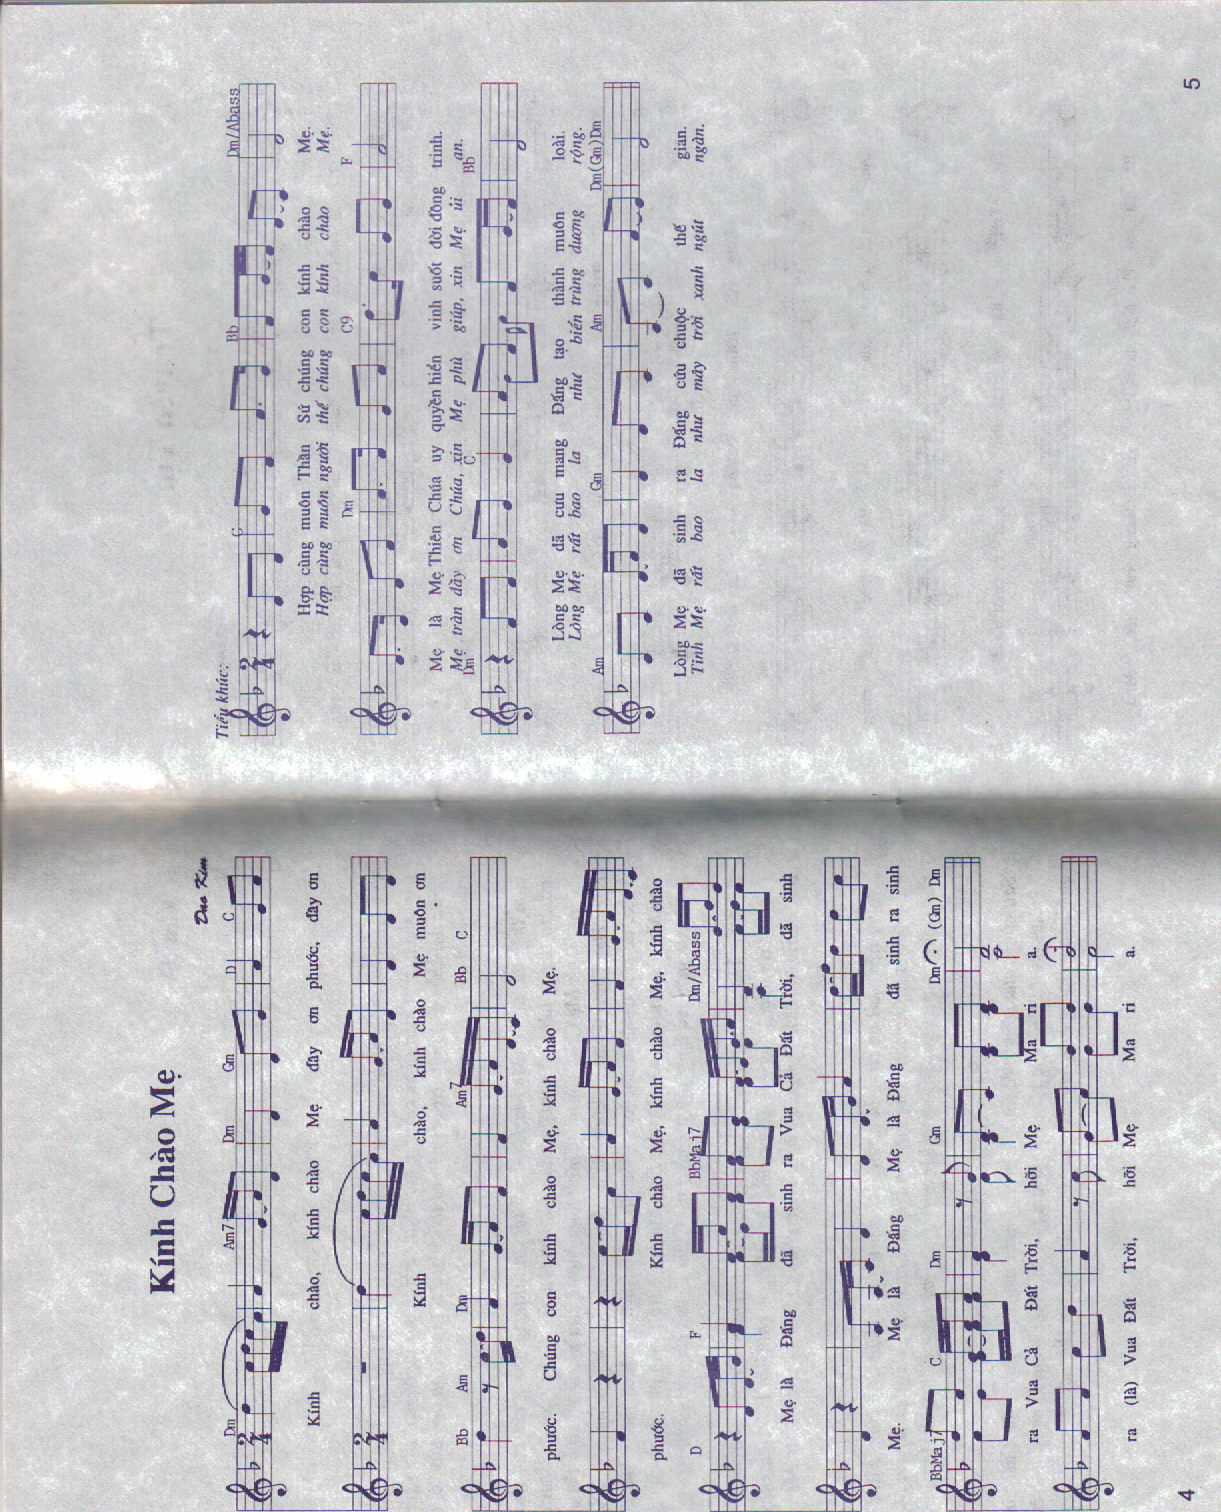 Kính Chào Mẹ
Duo Kim
Dm Am7 Dm Gm D C
2 4
Kính chào, kính chào Mẹ đầy ơn phước, đầy ơn
2 4
Kính chào, kính chào Mẹ muôn ơn
Bb Am Dm Am7 Bb C
phước. Chúng con kính chào Mẹ, kính chào Mẹ.
phước. Kính chào Mẹ, kính chào Mẹ, kính chào
D F BbMaj7 Dm/Abass
Mẹ là Đấng đã sinh ra Vua Cả Đất Trời, đã sinh
Mẹ. Mẹ là Đấng Mẹ là Đấng đã sinh ra sinh
BbMaj7 C Dm Gm Dm (Gm) Dm
ra Vua Cả Đất Trời, hỡi Mẹ Ma ri a.
ra (là) Vua Đất Trời, hỡi Mẹ Ma ri a.
4
Tiểu khúc:
C Bb Dm/Abass
2 4
Hợp cùng muôn Thần Sứ chúng con kính chào Mẹ.
Hợp cùng muôn người thế chúng con kính chào Mẹ.
Dm C9 F
Mẹ là Mẹ Thiên Chúa uy quyền hiển vinh suốt đời đồng trinh.
Mẹ tràn đầy ơn Chúa, xin Mẹ phù giúp, xin Mẹ ủi an.
Dm C Bb
Lòng Mẹ đã cưu mang Đấng tạo thành muôn loài.
Lòng Mẹ rất bao la như biển trùng dương rộng.
Am Gm Am Dm(Gm)Dm
Lòng Mẹ đã sinh ra Đấng cứu chuộc thế gian.
Tình Mẹ rất bao la như mây trời xanh ngút ngàn.
5